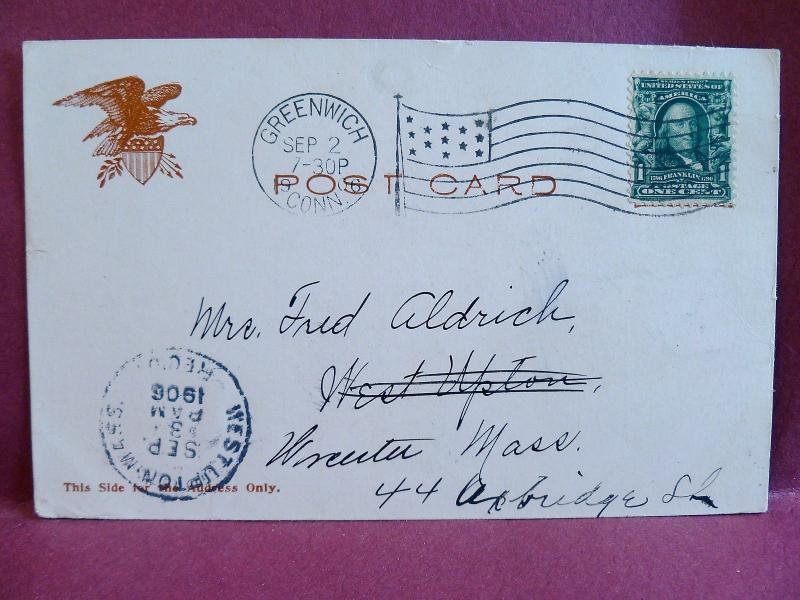 GREENWICH
SEP 2
7-30P
19 06
CONN.
SERIES 1902
UNITED STATES OF
AMERICA
1706 FRANKLIN 1790
POSTAGE
1 ONE CENT 1
POST CARD
Mrs. Fred Aldrich,
West Upton,
Worcester Mass.
44 Oxbridge St
WEST UPTON, MASS.
SEP.
3
AM
1906
REC'D.
This Side for the Address Only.